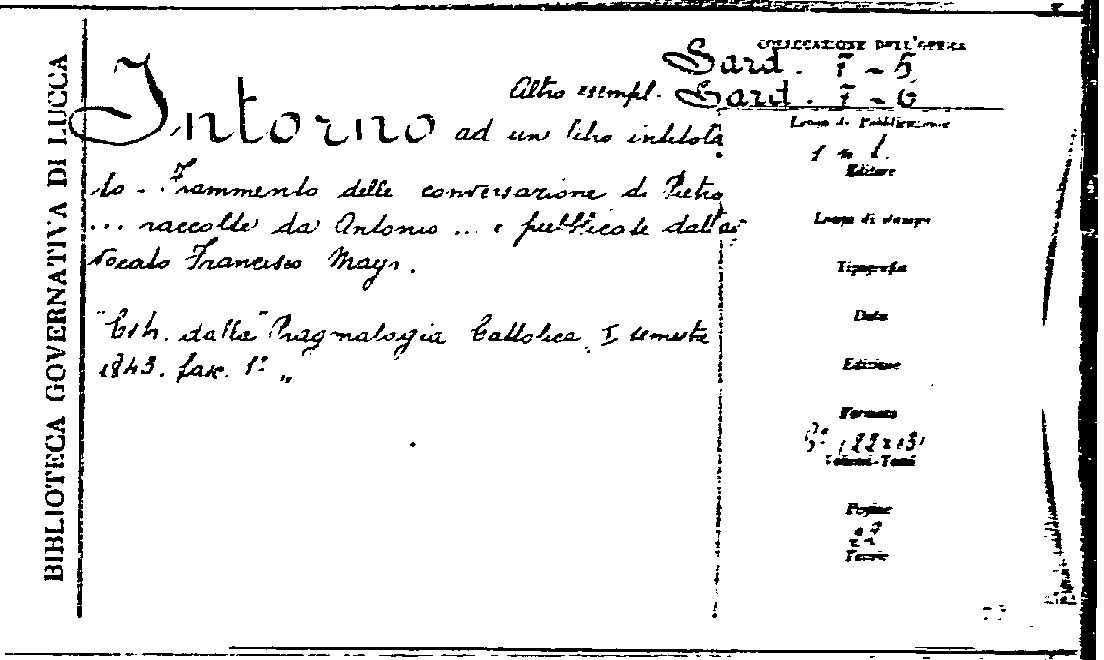 BIBLIOTECA GOVERNATIVA DI LUCCA
COLLOCAZIONE DELL'OPERA
Sard. F - 5
Altro esempl. Sard. F - 6
Intorno ad un libro intitola
to - Frammento delle conversazione di Pietro
... raccolte da Antonio ... e pubblicate dall'av
vocato Francesco Mayr.
"Estr. dalla "Pragmalogia Cattolica, I semestre
1843. fasc. 1° "
Luogo di Pubblicazione
s n l.
Editore
Luogo di stampa
Tipografia
Data
Edizione
Formato
8° (22x13)
Volumi-Tomi
Pagine
Tavole